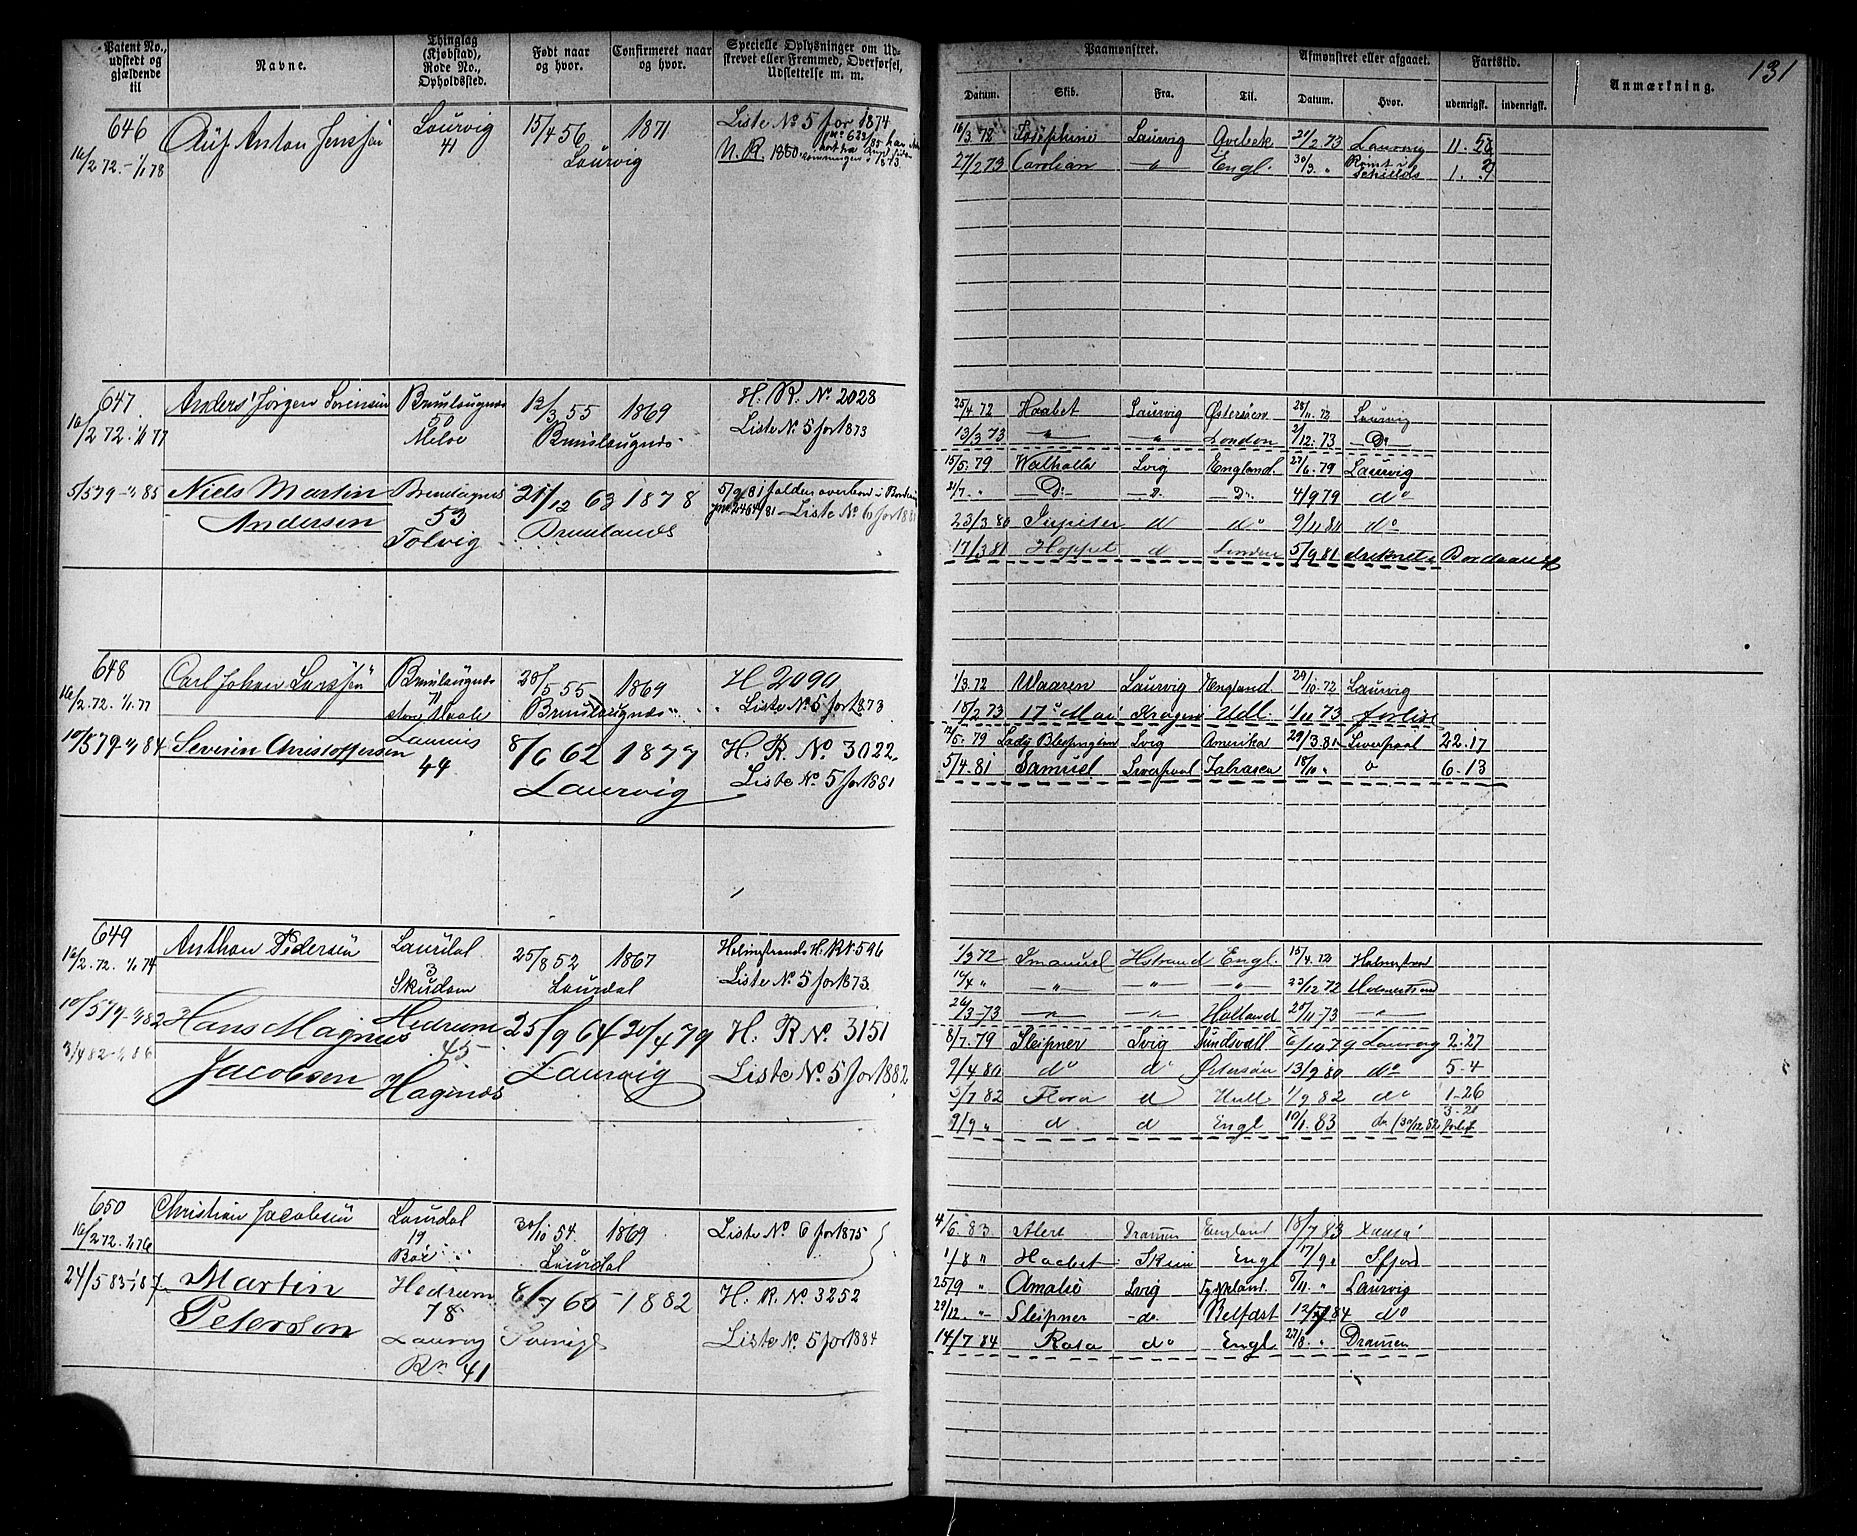 131
Patent No., udstedt og gjældende til
Navne.
Thinglag (Kjøbstad), Rode No., Opholdssted.
Født naar og hvor.
Confirmeret naar og hvor.
Specielle Oplysninger om Udskrevet eller Fremmed, Overførsel, Udslettelse m. m.
Paamønstret.
Afmønstret eller afgaaet.
Fartstid.
Anmærkning.
Datum. Skib. Fra. Til. Datum. Hvor. udenrigsk. indenrigsk.
646
16/2 72 - 1/1 78
Anton Jenssen
Laurvig
41
15/4 56
Laurvig
1871
Liste No 5 for 1874
N. R. 1860
16/3 72 Josephine Laurvig 21/2 73 Laurvig 11.
27/2 73 Carolian Engl. 30/3 " Rømt i Schields 1.
647
16/2 72 - 1/1 77
Anders Jørgen Sørensen
Brunlaugnes
50
12/3 55
Brunlaugnes
1869
H. R. No 2028
Liste No 5 for 1873
25/4 72 Haabet Laurvig Østersøen 28/11 72 Laurvig
13/3 73 " " London 2/12 73 Do
5/5 79 - 1/1 85
Niels Martin
Andersen
Brunlagnes
53
Tolvig
21/12 63
Brunlanes
1878
5/9 81 falden overbord i Bordeaux
Liste No 6 for 1881
15/5 79 Walhalla Lvig England 27/6 79 Laurvig
21/7 " Do D. Do 4/9 79 do
23/3 80 Jupiter d do 9/11 80 do
17/3 81 Hoppet d London 5/9 81 druknet i Bordeaux
648
16/2 72. 1/1 77
Carl Johan Larssen
Brunlaugnes
71
28/5 55
Brunlaugnes
1869
H 2090
Liste No 5 for 1873
1/3 72 Maaren Laurvig England 29/10 72 Laurvig
15/2 73 17 Mai Kragerø Udl. 1/11 73 forlise
10/5 79 - 1/1 84
Severin Christoffersen
Laurvig
49
8/6 62
Laurvig
1877
H. R. No 3022
Liste No 5 for 1881
12/5 79 Lady Blessington Lvig Amerika 29/3 81 Liverpool 22.17
5/4 81 Samuel Liverpool 15/10 " 6-13
649
16/2 72. 1/1 74
Anthon Pedersen
Laurdal
3
Skudem
25/8 52
Laurdal
1867
Holmstrands H. R. No 596
Liste No 5 for 1873.
1/3 72 Imanuel Hstrand Engl. 15/4 72 Holmstrand
10/4 " " " " 23/12 72 Holmestrand
26/3 73 " " Holland 25/11 73 "
10/5 79 - 1/1 82
3/4 82 - 1/1 86
Hans Magnus
Jacobsen
Hedrum
45
Hagenæs
25/9 64
Laurvig
20/4 79
H. R No. 3151
Liste No. 5 for 1882
8/7 79 Sleipner Lvig Sundsvall 6/10 79 Laurvig 2-27
2/4 80 do d Østersøen 13/9 80 do 5-4
5/7 82 Flora d Hull 1/9 82 do 1-26
9/9 " d. d Engl 10/1 83 do (30/12 82 forlist 3-21
650
16/2 72. 1/1 76
Christian Jacobsen
Laurdal
19
Bøe
30/10 54.
Laurdal
1869
Liste No 6 for 1875
24/5 83 - 1/1 87
Martin
Peterson
Hedrum
78
Laurvig
Rn 41
8/7 65
1882
H. R. No. 3252
Liste No. 5 for 1884
4/6 83 Alert Dramen England 18/7 83
1/8 " Haabet Skien Engl 17/9 "
25/9 " Amalie Lvig Tyskland. Laurvig
29/12 " Sleipner do. Belfast 84 do
14/7 84 Rosa do Engl 27/8 " Dramen